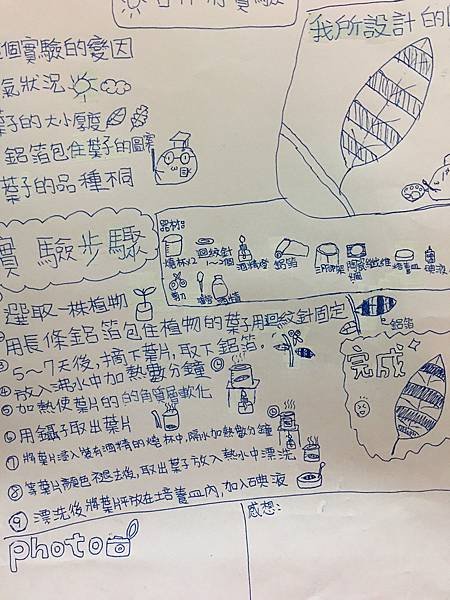 光合作用實驗
個實驗的變因
氣狀況
葉子的大小厚度
鋁箔包住葉子的圖案
葉子的品種不同
我所設計的
實驗步驟
器材:
燒杯x2 迴紋針 1~2個 酒精燈 鋁箔 三腳架 陶瓷纖維網 培養皿 碘液
剪刀 鑷子 酒精
①選取一株植物
②用長條鋁箔包住植物的葉子用迴紋針固定
鋁箔
③5~7天後,摘下葉片,取下鋁箔。
④放入沸水中加熱數分鐘
⑤加熱使葉片的的角質層軟化
⑥用鑷子取出葉片
⑦將葉片浸入裝有酒精的燒杯中,隔水加熱數分鐘
⑧等葉片顏色褪去後,取出葉子放入熱水中漂洗
⑨漂洗後將葉片平放在培養皿內,加入碘液
完成
photo
感想: